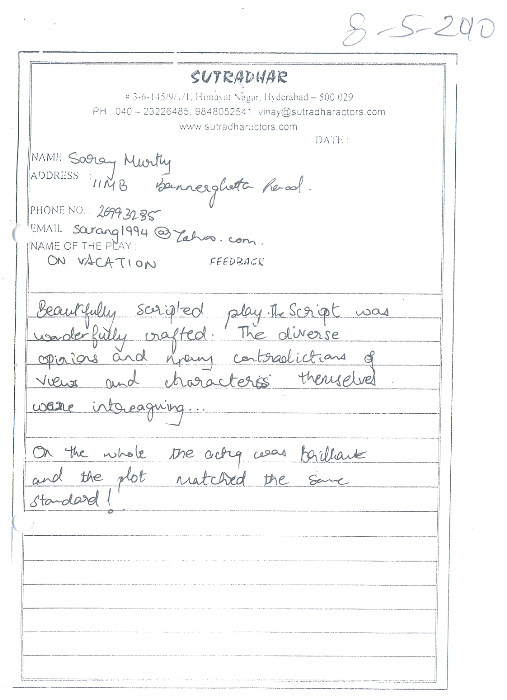 8-5-2010
SUTRADHAR
# 3-6-145/9/1/1, Himayat Nagar, Hyderabad – 500 029
PH : 040 – 23226485, 9848052841 vinay@sutradharactors.com
www.sutradharactors.com
DATE :
NAME Sarang Murthy
ADDRESS : IIMB Bannerghatta Road.
PHONE NO. 26993285
EMAIL sarang1994@Yahoo.com.
NAME OF THE PLAY :
ON VACATION FEEDBACK
Beautifully scripted play. The Script was
wonderfully crafted. The diverse
opinions and many contradictions of
views and characters themselves
were intereaguing...
On the whole the acting was brilliant
and the plot matched the same
standard!